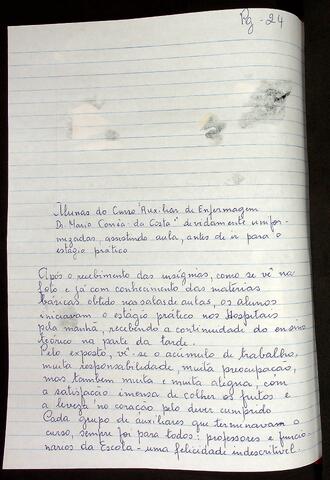 Pg - 24
Alunas do Curso "Auxiliar de Enfermagem
Dr. Mario Corrêa da Costa" devidamente unifor-
mizadas, assistindo aula, antes de ir para o
estágio prático
Após o recebimento das insígnias, como se vê na
foto e já com conhecimento das matérias
básicas obtido nas salas de aulas, os alunos
iniciavam o estágio prático nos Hospitais
pela manhã, recebendo a continuidade do ensino
teórico na parte da tarde.
Pelo exposto, vê-se o acumulo de trabalho,
muita responsabilidade, muita preocupação,
mas também muita e muita alegria, com
a satisfação imensa de colher os frutos e
a leveza no coração pelo dever cumprido
Cada grupo de auxiliares que terminavam o
curso, sempre foi para todos: professores e funcio-
nários da Escola - uma felicidade indescritível.